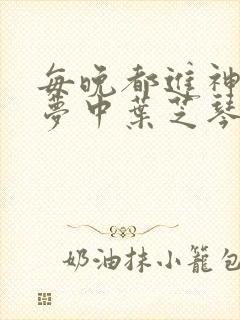 每晚都進神
夢中葉芝琴
奶油抹小籠包